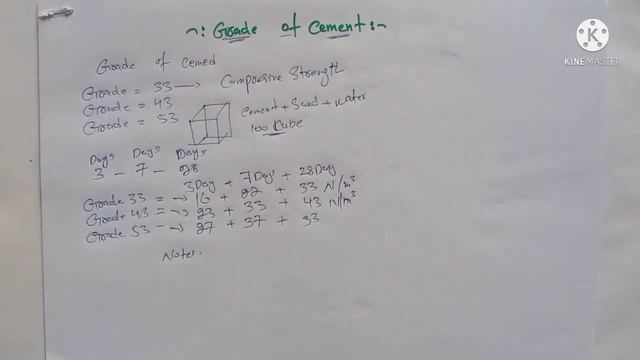 ~: Grade of Cement:~
Grade of cemed
Grade = 33 → Compresive Strength
Grade = 43
Grade = 53
Cement + Sand + water
100 Cube
Days Days Days
3 - 7 - 28
3Day + 7Day' + 28Day
Grade 33 = → 16 + 22 + 33 N/m³
Grade 43 = → 23 + 33 + 43 N/m³
Grade 53 - → 27 + 37 + 53
Notes.
KINEMASTER